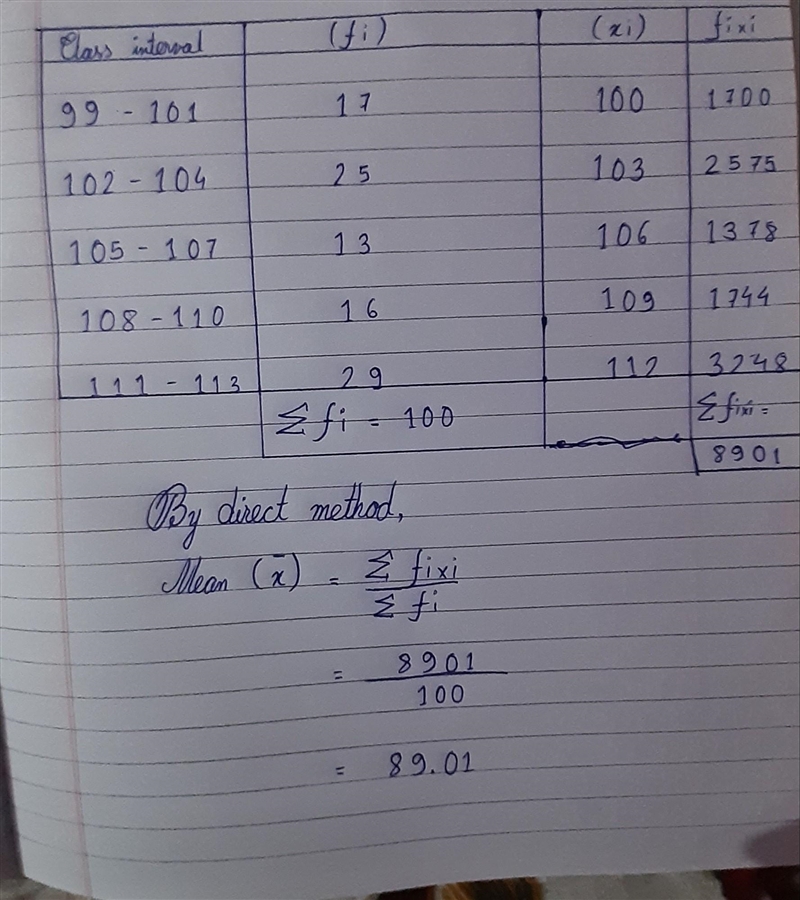 Class interval (fi) (xi) fixi
99 - 101 17 100 1700
102 - 104 25 103 2575
105 - 107 13 106 1378
108 - 110 16 109 1744
111 - 113 29 112 3248
Σ fi = 100 Σ fixi =
8901
By direct method,
Mean (x̄) = Σ fixi
Σ fi
= 8901
100
= 89.01